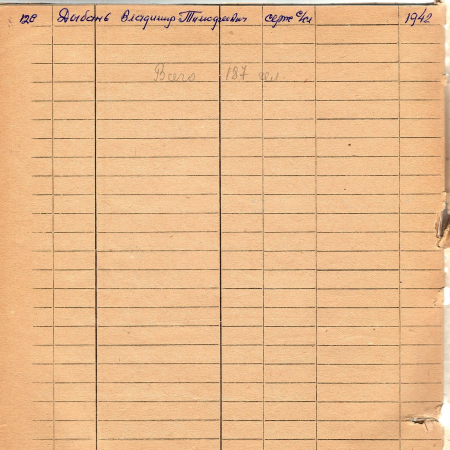 126 Дыбань Владимир Тимофеевич серж с/сл 1942
Всего 187 чел